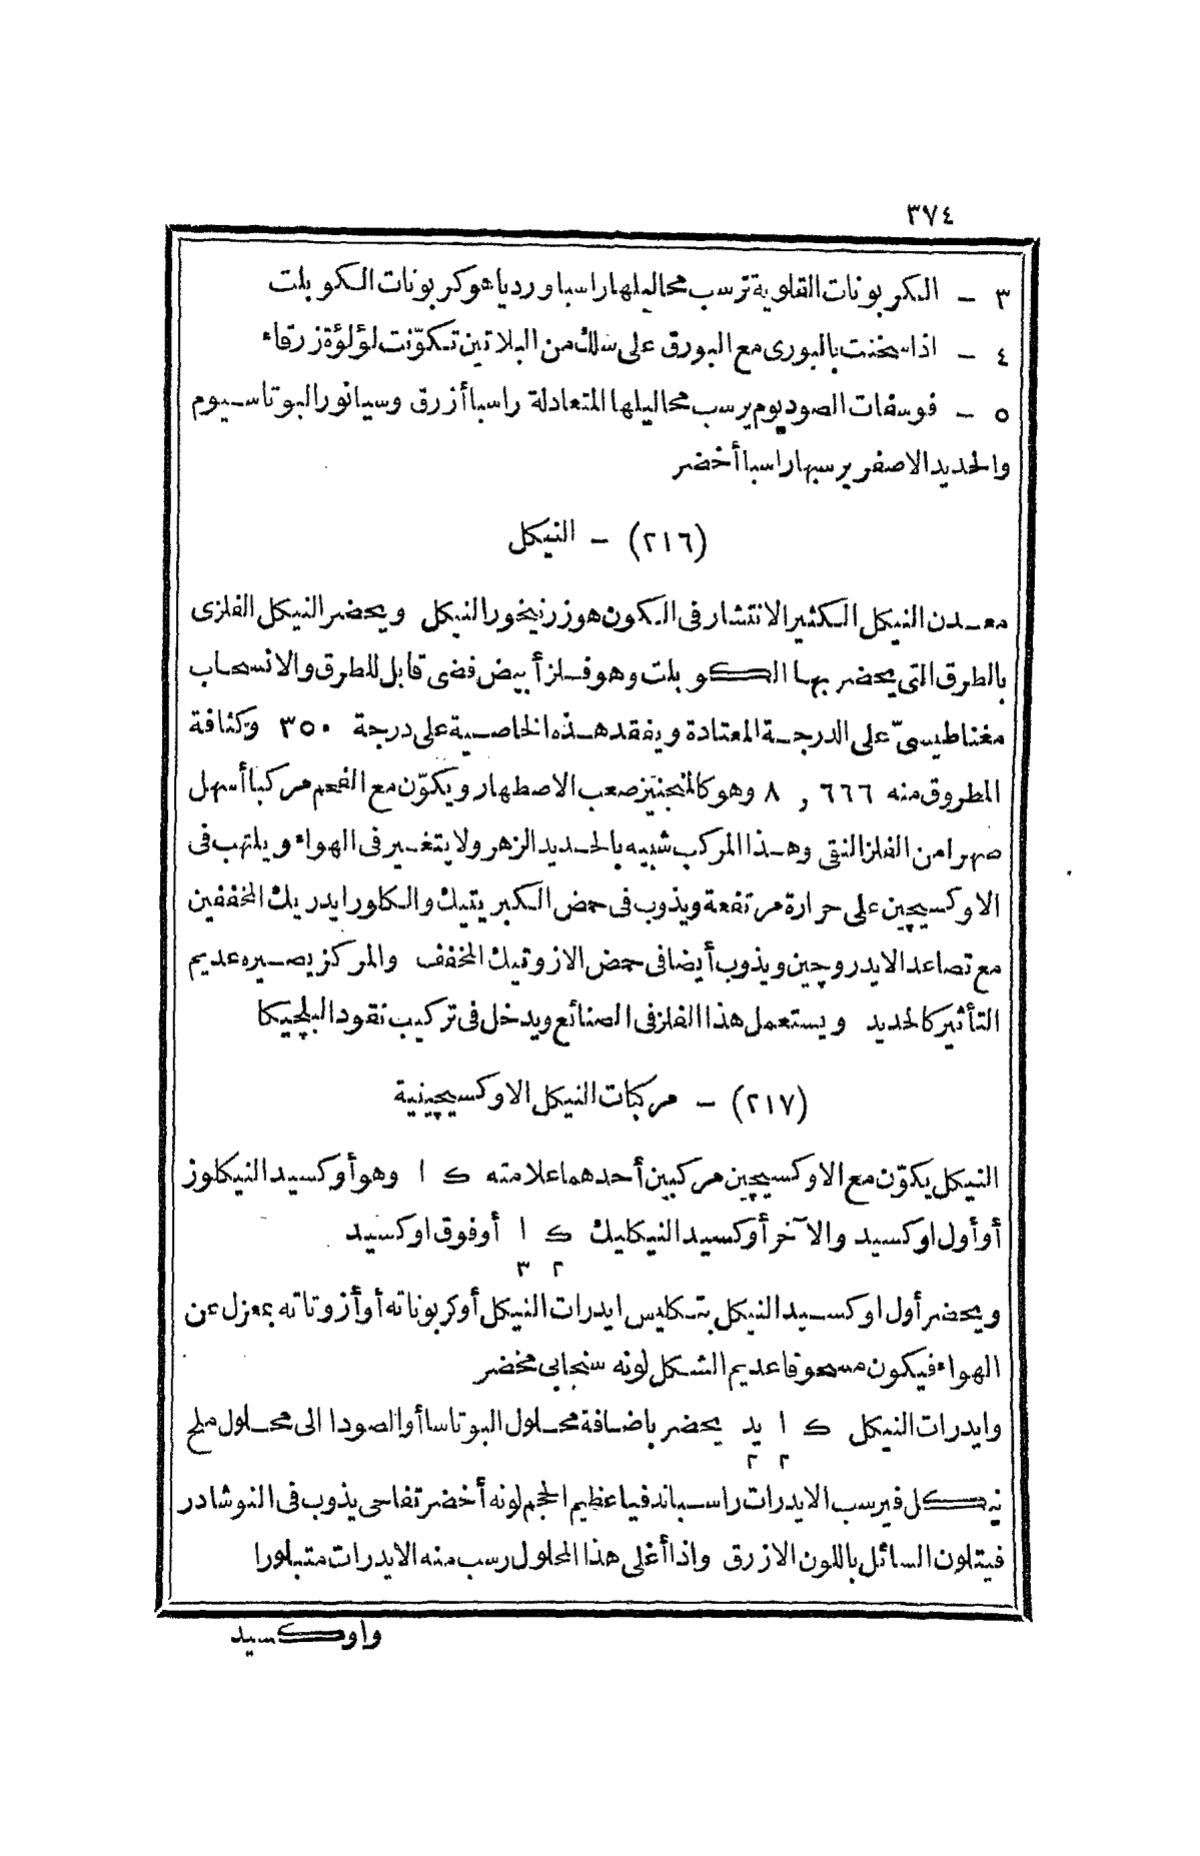 ٣٧٤
٣ – الكربونات القلوية ترسب محاليلها راسبا ورديا هو كربونات الكوبلت
٤ – اذا سخنت بالبورى مع البورق على سلك من البلاتين تكوّنت لؤلؤة زرقاء
٥ – فوسفات الصوديوم يرسب محاليلها المتعادلة راسبا أزرق وسيانور البوتاسيوم
والحديد الاصفر يرسبها راسبا أخضر
(٢١٦) – النيكل
معدن النيكل الكثير الانتشار فى الكون هو زرنيخور النيكل ويحضر النيكل الفلزى
بالطرق التى يحضر بها الكوبلت وهو فلز أبيض فضى قابل للطرق والانسحاب
مغناطيسىّ على الدرجة المعتادة ويفقد هذه الخاصية على درجة ٣٥٠ وكثافة
المطروق منه ٦٦٦ , ٨ وهو كالمنجنيز صعب الاصطهار ويكوّن مع الفحم مركبا أسهل
صهرا من الفلز النقى وهذا المركب شبيه بالحديد الزهر ولا يتغير فى الهواء ويلتهب فى
الاوكسيچين على حرارة مرتفعة ويذوب فى حمض الكبريتيك والكلورايدريك المخففين
مع تصاعد الايدروچين ويذوب أيضا فى حمض الازوتيك المخفف والمركز يصيره عديم
التأثير كالحديد ويستعمل هذا الفلز فى الصنائع ويدخل فى تركيب نقود البلچيكا
(٢١٧) – مركبات النيكل الاوكسيچينية
النيكل يكوّن مع الاوكسيچين مركبين أحدهما علامته ك ا وهو أوكسيد النيكلوز
أو أول اوكسيد والآخر أوكسيد النيكليك ك ا أوفوق اوكسيد
٢ ٣
ويحضر أول اوكسيد النيكل بتكليس ايدرات النيكل أو كربوناته أو أزوتاته بمعزل عن
الهواء فيكون مسحوقا عديم الشكل لونه سنجابى مخضر
وايدرات النيكل ك ا يد يحضر باضافة محلول البوتاسا أو الصودا الى محلول ملح
٢ ٢
نيكل فيرسب الايدرات راسبا ندفيا عظيم الحجم لونه أخضر تفاحى يذوب فى النوشادر
فيتلون السائل باللون الازرق واذا أغلى هذا المحلول رسب منه الايدرات متبلورا
واوكسيد